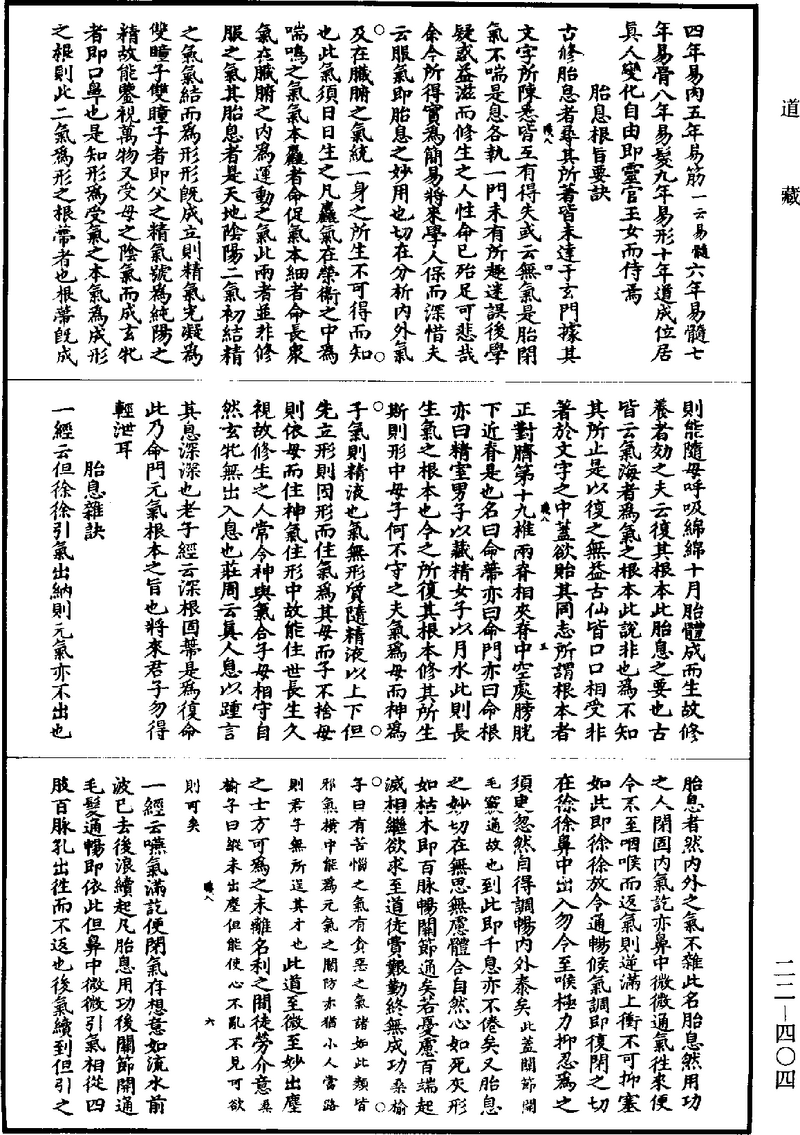 道藏
四年易肉五年易筋一云易髓六年易髓七
年易骨八年易髮九年易形十年道成位居
真人變化自由即靈官玉女而侍焉
胎息根旨要訣
古修胎息者尋其所著皆未達于玄門據其
文字所陳悉皆互有得失或云無氣是胎閉
氣不喘是息各執一門未有所趣迷誤後學
疑惑益滋而修生之人性命已殆足可悲哉
余今所得實為簡易將來學人保而深惜夫
云服氣即胎息之妙用也切在分析內外氣
及在臟腑之氣統一身之所生不可得而知
也此氣須日日生之凡麤氣在榮衛之中為
喘鳴之氣氣本麤者命促氣本細者命長衆
氣在臟腑之內為運動之氣此兩者並非修
服之氣其胎息者是天地陰陽二氣初結精
之氣氣結而為形形既成立則精氣光凝為
雙瞳子雙瞳子者即父之精氣號為純陽之
精故能鑒視萬物又受母之陰氣而成玄牝
者即口鼻也是知形為受氣之本氣為成形
之根則此二氣為形之根蔕者也根蔕既成
則能隨母呼吸綿綿十月胎體成而生故修
養者効之夫云復其根本此胎息之要也古
皆云氣海者為氣之根本此說非也為不知
其所止是以復之無益古仙皆口口相受非
著於文字之中蓋欲貽其同志所謂根本者
正對臍第十九椎兩脊相夾脊中空處膀胱
下近脊是也名曰命蔕亦曰命門亦曰命根
亦曰精室男子以藏精女子以月水此則長
生氣之根本也今之所復其根本修其所生
斯則形中母子何不守之夫氣為母而神為
子氣則精液也氣無形質隨精液以上下但
先立形則因形而住氣為其母而子不捨母
則依母而住神氣住形中故能住世長生久
視故修生之人常令神與氣合子母相守自
然玄牝無出入息也莊周云真人息以踵言
其息深深也老子經云深根固蔕是為復命
此乃命門元氣根本之旨也將來君子勿得
輕泄耳
胎息雜訣
一經云但徐徐引氣出納則元氣亦不出也
胎息者然內外之氣不雜此名胎息然用功
之人閉固內氣訖亦鼻中微微通氣往來便
令不至咽喉而返氣則逆滿上衝不可抑塞
如此即徐徐放令通暢候氣調即復閉之切
在徐徐鼻中出入勿令至喉極力抑忍為之
須臾忽然自得調暢內外泰矣此蓋關節開
毛竅通故也到此即千息亦不倦矣又胎息
之妙切在無思無慮體合自然心如死灰形
如枯木即百脉暢關節通矣若憂慮百端起
滅相繼欲求至道徒費艱勤終無成功桑榆
子曰有苦惱之氣有貪惡之氣諸如此類皆
邪氣橫中能為元氣之關防亦猶小人當路
則君子無所逞其才也此道至微至妙出塵
之士方可為之未離名利之間徒勞介意桑
榆子曰縱未出塵但能使心不亂不見可欲
則可矣
一經云嚥氣滿訖便閉氣存想意如流水前
波已去後浪續起凡胎息用功後關節開通
毛髮通暢即依此但鼻中微微引氣相從四
肢百脉孔出往而不返也後氣續到但引之
二二—四〇四